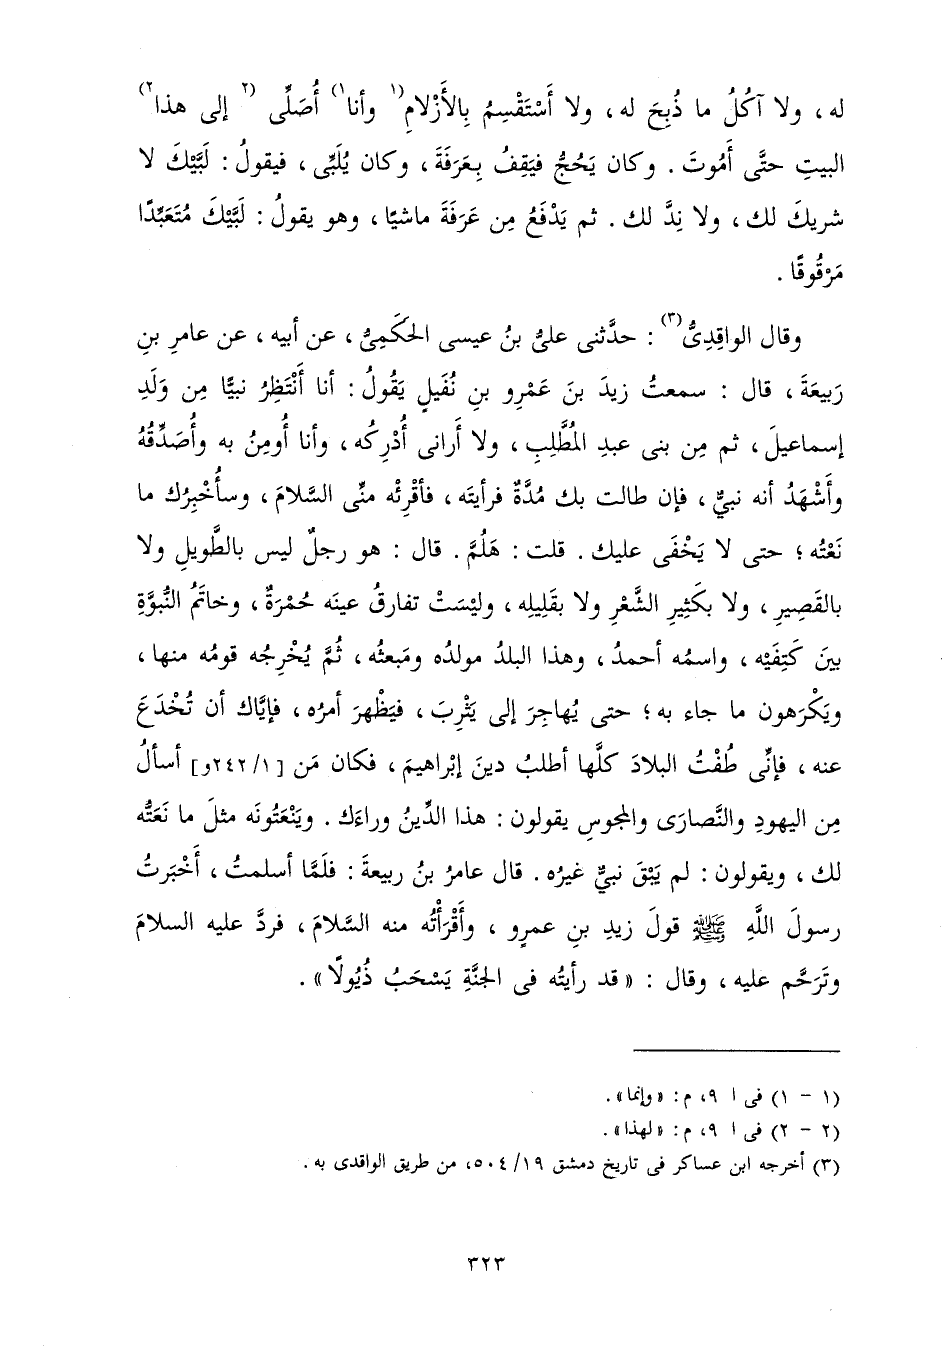 له ، ولا آكُلُ ما ذُبِحَ له ، ولا أَسْتَقْسِمُ بِالأَزْلامِ (١ وأنا ١) أُصَلِّى (٢ إلى هذا ٢)
البيتِ حتَّى أَمُوتَ . وكان يَحُجُّ فيَقِفُ بِعَرَفَةَ ، وكان يُلَبِّى ، فيقولُ : لَبَّيْكَ لا
شريكَ لك ، ولا نِدَّ لك . ثم يَدْفَعُ مِن عَرَفَةَ ماشيًا ، وهو يقولُ : لَبَّيْكَ مُتَعَبِّدًا
مَرْقُوقًا .
وقال الواقِدِىُّ (٣) : حدَّثنى علىُّ بنُ عيسى الحَكَمِىُّ ، عن أبيه ، عن عامرِ بنِ
رَبيعَةَ ، قال : سمعتُ زيدَ بنَ عَمْرِو بنِ نُفَيلٍ يَقُولُ : أنا أَنْتَظِرُ نبيًّا مِن وَلَدِ
إسماعيلَ ، ثم مِن بنى عبدِ المُطَّلِبِ ، ولا أَرانى أُدْرِكُه ، وأنا أُومِنُ به وأُصَدِّقُهُ
وأَشْهَدُ أنه نبىٌّ ، فإن طالت بك مُدَّةٌ فرأيتَه ، فأَقْرِئْه منِّى السَّلامَ ، وسأُخْبِرُك ما
نَعْتُه ؛ حتى لا يَخْفَى عليك . قلت : هَلُمَّ . قال : هو رجلٌ ليس بالطَّويلِ ولا
بالقَصِيرِ ، ولا بكَثِيرِ الشَّعْرِ ولا بقَلِيلِه ، وليْسَتْ تفارقُ عينَه حُمْرَةٌ ، وخاتَمُ النُّبوَّةِ
بينَ كَتِفَيْه ، واسمُه أحمدُ ، وهذا البلدُ مولدُه ومَبعثُه ، ثُمَّ يُخْرِجُه قومُه منها ،
ويَكْرَهون ما جاء به ؛ حتى يُهاجِرَ إلى يَثْرِبَ ، فيَظْهرَ أمرُه ، فإيَّاك أن تُخْدَعَ
عنه ، فإنِّى طُفْتُ البلادَ كلَّها أطلبُ دينَ إبْراهيمَ ، فكان مَن [ ١/ ٢٤٢و] أسألُ
مِن اليهودِ والنَّصارَى والمجوسِ يقولون : هذا الدِّينُ وراءَك . ويَنْعَتُونَه مثلَ ما نَعَتُّه
لك ، ويقولون : لم يَبْقَ نبىٌّ غيرُه . قال عامرُ بنُ ربيعةَ : فلَمَّا أسلمتُ ، أَخْبَرتُ
رسولَ اللَّهِ ﷺ قولَ زيدِ بنِ عمرٍو ، وأَقْرَأْتُه منه السَّلامَ ، فردَّ عليه السلامَ
وتَرَحَّم عليه ، وقال : « قد رأيتُه فى الجَنَّةِ يَسْحَبُ ذُيُولًا » .
(١ - ١) فى ا ٩، م : « وإنما » .
(٢ - ٢) فى ا ٩، م : « لهذا » .
(٣) أخرجه ابن عساكر فى تاريخ دمشق ١٩/ ٥٠٤، من طريق الواقدى به .
٣٢٣